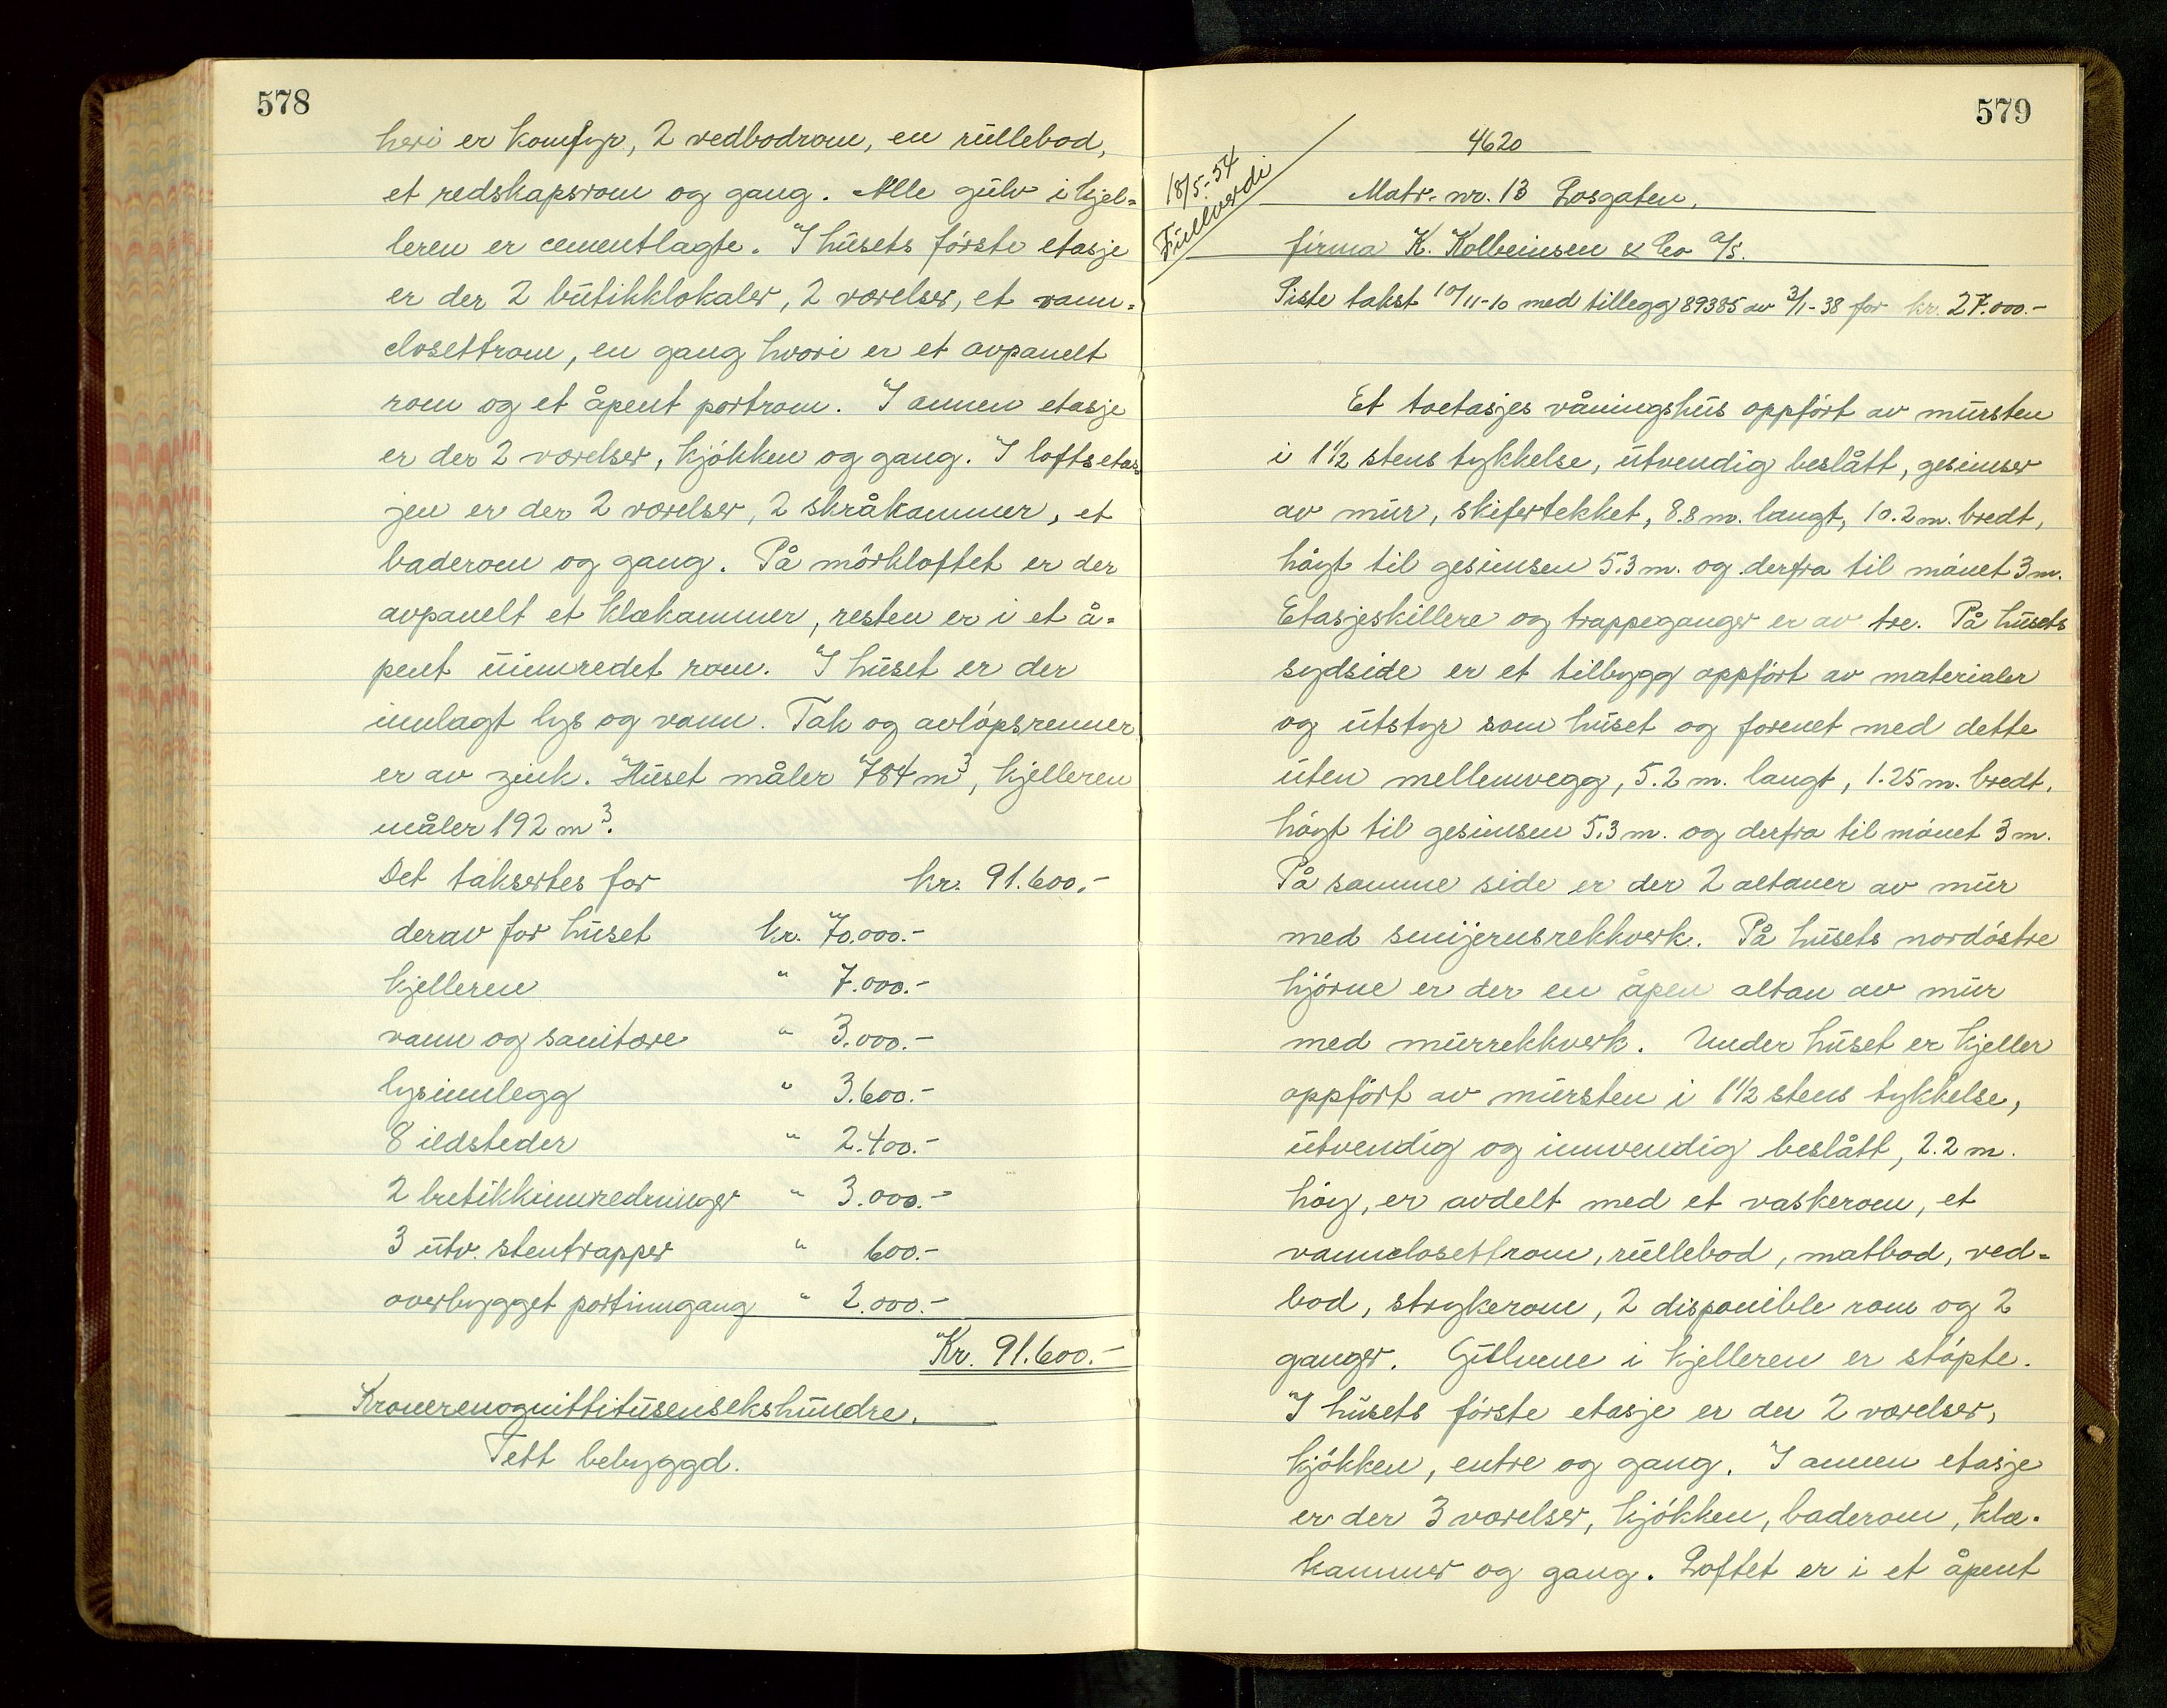 578
heri er komfyr, 2 vedbodrom, en rullebod,
et redskapsrom og gang. Alle gulv i kjel-
leren er cementlagte. I husets förste etasje
er der 2 butikklokaler, 2 værelser, et vann-
closettrom, en gang hvori er et avpanelt
rom og et åpent portrom. I annen etasje
er der 2 værelser, kjökken og gang. I loftsetas-
jen er der 2 værelser, 2 skråkammer, et
baderom og gang. På mörkloftet er der
avpanelt et klækammer, resten er i et å-
pent uinnredet rom. I huset er der
innlagt lys og vann. Tak og avlöpsrenner
er av zink. Huset måler 784 m³, kjelleren
måler 192 m³.
Det takseres for kr. 91.600.-
derav for huset kr. 70.000.-
kjelleren " 7.000.-
vann og sanitære " 3.000.-
lysinnlegg " 3.600.-
8 ildsteder " 2.400.-
2 butikkinnredninger " 3.000.-
3 utv. stentrapper " 600.-
overbygget portinngang " 2.000.-
Kr. 91.600.-
Kronerenognittitusensekshundre.
Tett bebyggd.
579
18/5-54
Fullverdi
4620
Matr. nr. 13 Losgaten,
firma K. Kolbeinsen & Co a/s.
Siste takst 10/11-10 med tillegg 89385 av 3/1-38 for kr. 27.000.-
Et toetasjes våningshus oppfört av mursten
i 1½ stens tykkelse, utvendig beslått, gesimser
av mur, skifertekket, 8.8 m. langt, 10.2 m. bredt,
högt til gesimsen 5.3 m. og derfra til mönet 3 m.
Etasjeskillere og trappeganger er av tre. På husets
sydside er et tilbygg oppfört av materialer
og utstyr som huset og forenet med dette
uten mellemvegg, 5.2 m. langt, 1.25 m. bredt,
högt til gesimsen 5.3 m. og derfra til mönet 3 m.
På samme side er der 2 altaner av mur
med smijernsrekkverk. På husets nordöstre
hjörne er der en åpen altan av mur
med murrekkverk. Under huset er kjeller
oppfört av mursten i 1½ stens tykkelse,
utvendig og innvendig beslått, 2.2 m.
höy, er avdelt med et vaskerom, et
vannclosettrom, rullebod, matbod, ved-
bod, strykerom, 2 disponible rom og 2
ganger. Gulvene i kjelleren er stöpte.
I husets förste etasje er der 2 værelser,
kjökken, entre og gang. I annen etasje
er der 3 værelser, kjökken, baderom, klæ-
kammer og gang. Loftet er i et åpent